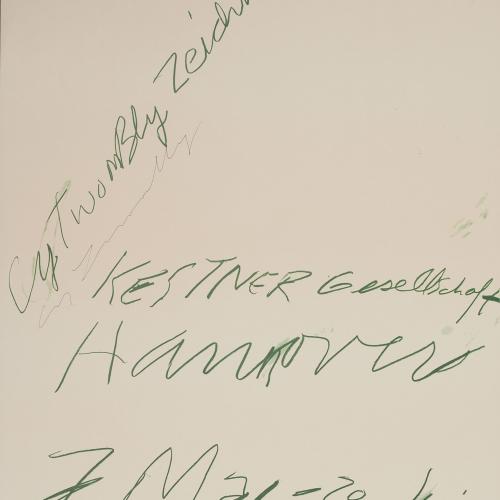 Cy Twombly Zeich
KESTNER Gesellschaft
Hannover
7 Mai - 20